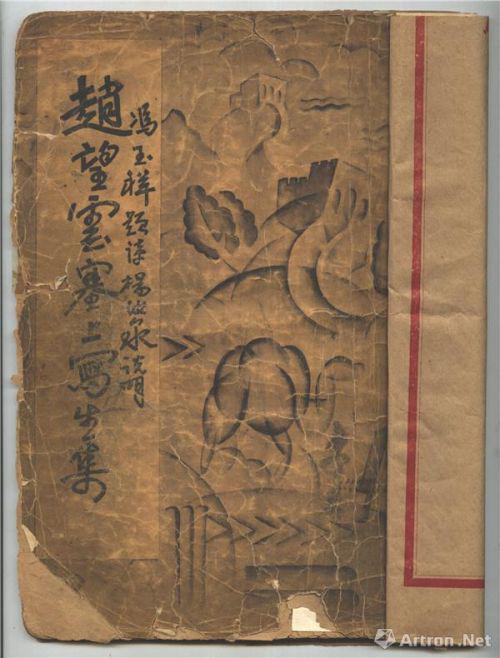 趙望雲塞上寫生集
馮玉祥題詩楊汝泉说明
Artron.Net